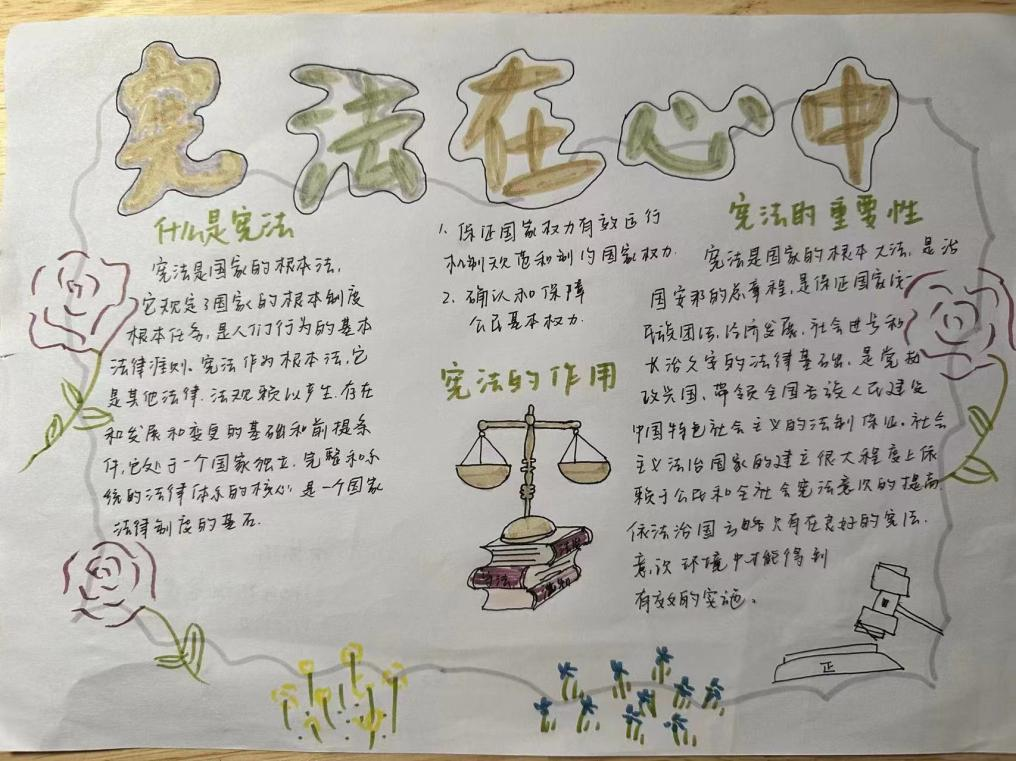 宪法在心中
什么是宪法
宪法是国家的根本法,
它规定了国家的根本制度
根本任务,是人们行为的基本
法律准则。宪法作为根本法,它
是其他法律.法规赖以产生.存在
和发展和变更的基础和前提条
件,它处于一个国家独立.完整和系
统的法律体系的核心.是一个国家
法律制度的基石.
1. 保证国家权力有效运行
机制规范和制约国家权力.
2. 确认和保障
公民基本权力.
宪法的作用
宪法
宪法的重要性
宪法是国家的根本大法,是治
国安邦的总章程,是保证国家统一
民族团结,经济发展,社会进步和
长治久安的法律基础.是党执
政兴国,带领全国各族人民建设
中国特色社会主义的法制保证.社会
主义法治国家的建立很大程度上依
赖于公民和全社会宪法意次的提高
依法治国 略只有在良好的宪法.
意次环境中才能得到
有效的实施。
正